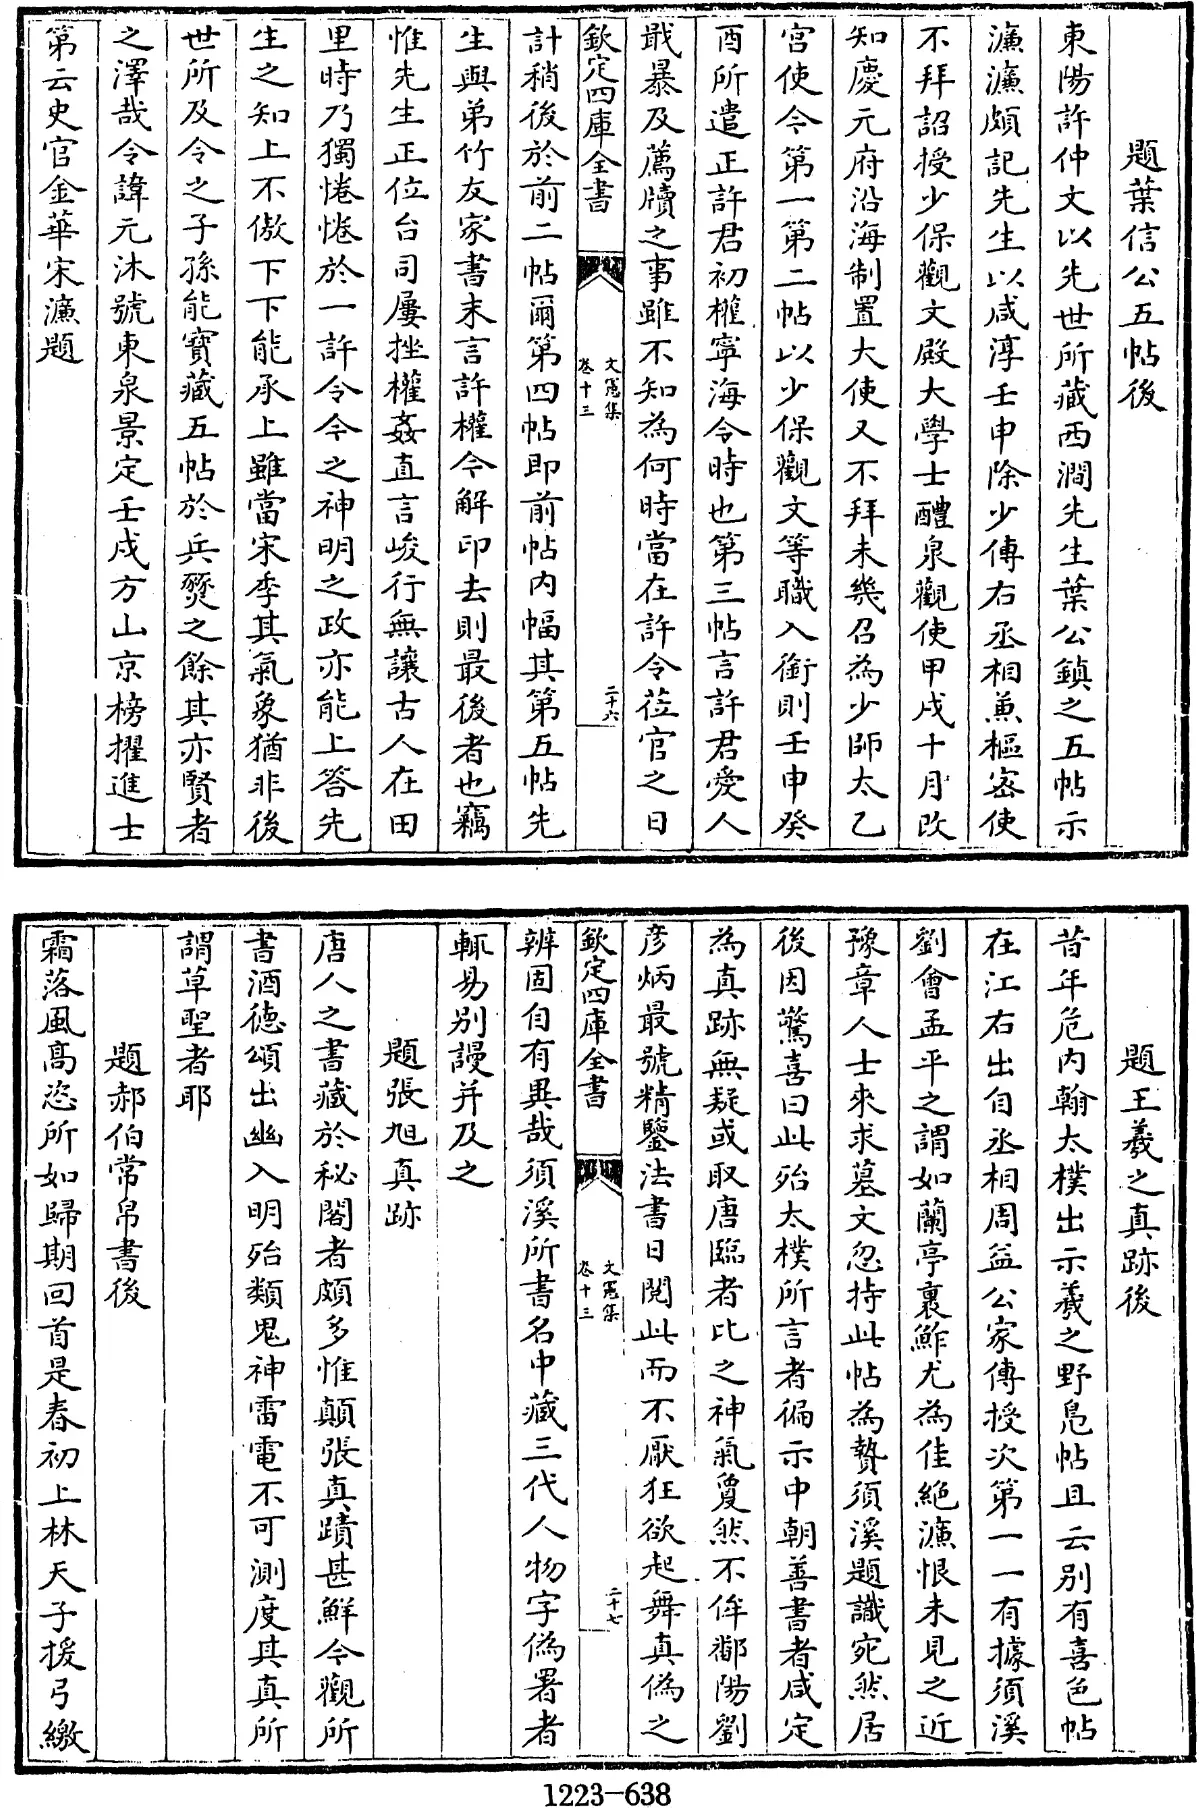 題葉信公五帖後
東陽許仲文以先世所藏西澗先生葉公鎮之五帖示
濂濂頗記先生以咸淳壬申除少傅右丞相兼樞密使
不拜詔授少保觀文殿大學士醴泉觀使甲戌十月改
知慶元府沿海制置大使又不拜未幾召為少師太乙
宮使今第一第二帖以少保觀文等職入銜則壬申癸
酉所遣正許君初權寧海令時也第三帖言許君愛人
戢暴及薦牘之事雖不知為何時當在許令莅官之日
欽定四庫全書
文憲集
卷十三
二十六
計稍後於前二帖爾第四帖即前帖内幅其第五帖先
生與弟竹友家書末言許權令解印去則最後者也竊
惟先生正位台司屢挫權姦直言峻行無讓古人在田
里時乃獨惓惓於一許令令之神明之政亦能上答先
生之知上不傲下下能承上雖當宋季其氣象猶非後
世所及令之子孫能寶藏五帖於兵燹之餘其亦賢者
之澤哉令諱元沐號東泉景定壬戌方山京榜擢進士
第云史官金華宋濂題
題王羲之真跡後
昔年危内翰太樸出示羲之野鳧帖且云别有喜色帖
在江右出自丞相周益公家傳授次第一一有據須溪
劉會孟平之謂如蘭亭裹鮓尤為佳絶濂恨未見之近
豫章人士來求墓文忽持此帖為贄須溪題識宛然居
後因驚喜曰此殆太樸所言者徧示中朝善書者咸定
為真跡無疑或取唐臨者比之神氣敻然不侔鄱陽劉
彦炳最號精鑒法書日閲此而不厭狂欲起舞真偽之
欽定四庫全書
文憲集
卷十三
二十七
辨固自有異哉須溪所書名中藏三代人物字偽署者
輒易别謾并及之
題張旭真跡
唐人之書藏於秘閣者頗多惟顛張真蹟甚鮮今觀所
書酒德頌出幽入明殆類鬼神雷電不可測度其真所
謂草聖者耶
題郝伯常帛書後
霜落風高恣所如歸期回首是春初上林天子援弓繳
1223-638